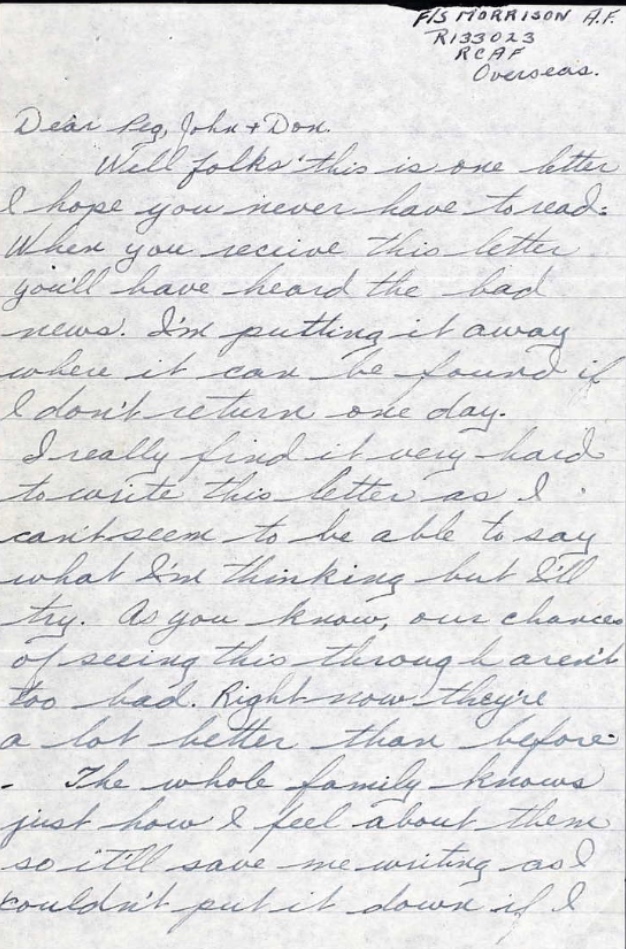 F/S MORRISON A.F.
R133023
RCAF
Overseas.
Dear Peg, John + Don.
Well folks this is one letter
I hope you never have to read.
When you receive this letter
you'll have heard the bad
news. I'm putting it away
where it can be found if
I don't return one day.
I really find it very hard
to write this letter as I
can't seem to be able to say
what I'm thinking but I'll
try. As you know, our chances
of seeing this through aren't
too bad. Right now they're
a lot better than before.
- The whole family knows
just how I feel about them
so it'll save me writing as I
couldn't put it down if I